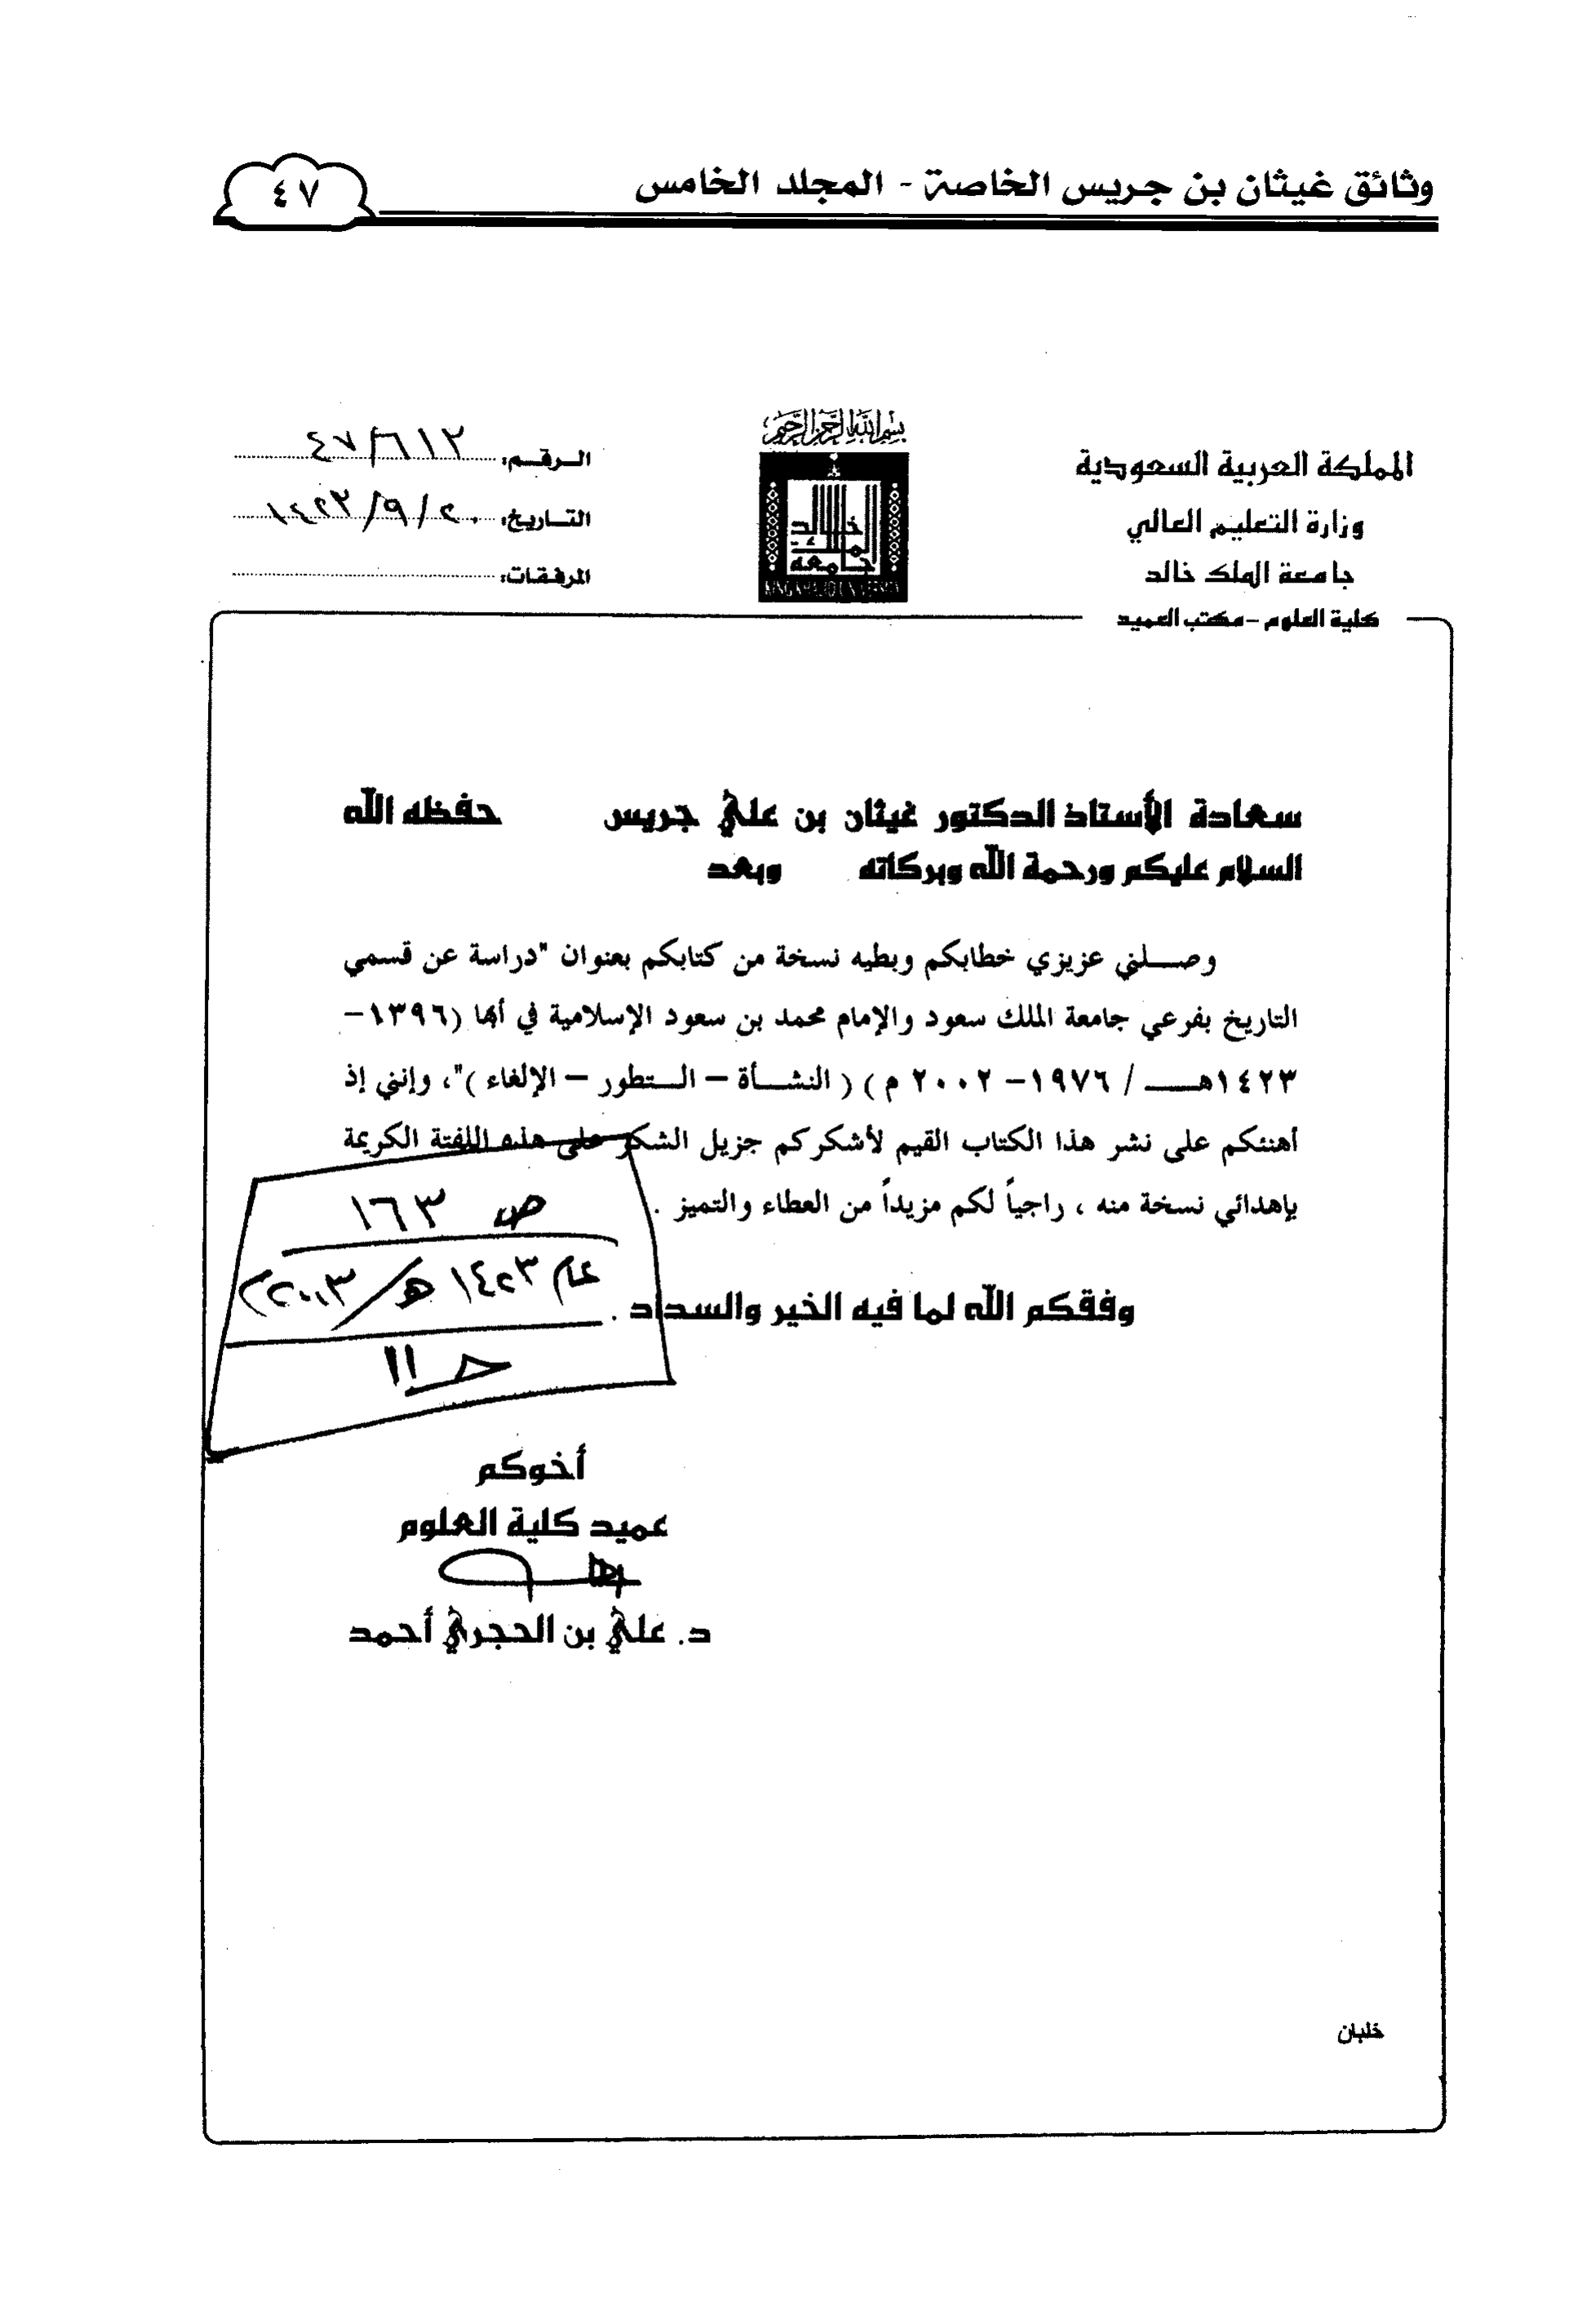 وثائق غيثان بن جريس الخاصة - المجلد الخامس
٤٧
بسم الله الرحمن الرحيم
المملكة العربية السعودية
وزارة التعليم العالي
جامعة الملك خالد
كلية العلوم - مكتب العميد
جامعة الملك خالد
KING KHALID UNIVERSITY
الـرقـم: ٤٧/٦١٢
التـاريخ: ١٤٢٣/٩/٢٠
المرفقات:
سعادة الأستاذ الدكتور غيثان بن علي جريس حفظه الله
السلام عليكم ورحمة الله وبركاته وبعد
وصـــلني عزيزي خطابكم وبطيه نسخة من كتابكم بعنوان "دراسة عن قسمي
التاريخ بفرعي جامعة الملك سعود والإمام محمد بن سعود الإسلامية في أبها (١٣٩٦-
١٤٢٣هـــ / ١٩٧٦- ٢٠٠٢ م) ( النشـــأة – الـــتطور – الإلغاء )"، وإنني إذ
أهنئكم على نشر هذا الكتاب القيم لأشكركم جزيل الشكر على هذه اللفتة الكريمة
بإهدائي نسخة منه ، راجياً لكم مزيداً من العطاء والتميز .
وفقكم الله لما فيه الخير والسداد .
ص ١٦٣
عام ١٤٢٣ هـ/٢٠٠٣م
حـ ١١
أخوكم
عميد كلية العلوم
د. علي بن الحجري أحمد
خلبان